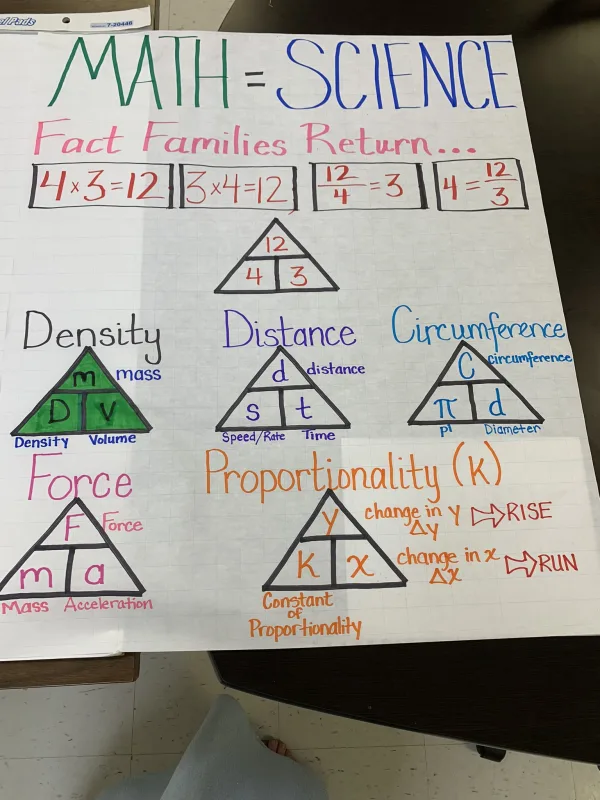 el Pads
7-20448
MATH = SCIENCE
Fact Families Return...
4 x 3 = 12
3 x 4 = 12
12/4 = 3
4 = 12/3
12
4 3
Density
m mass
D V
Density Volume
Distance
d distance
s t
Speed/Rate Time
Circumference
C circumference
π d
Pi Diameter
Force
F Force
m a
Mass Acceleration
Proportionality (k)
y
k x
Constant
of
Proportionality
change in y ⇨ RISE
Δy
change in x ⇨ RUN
Δx